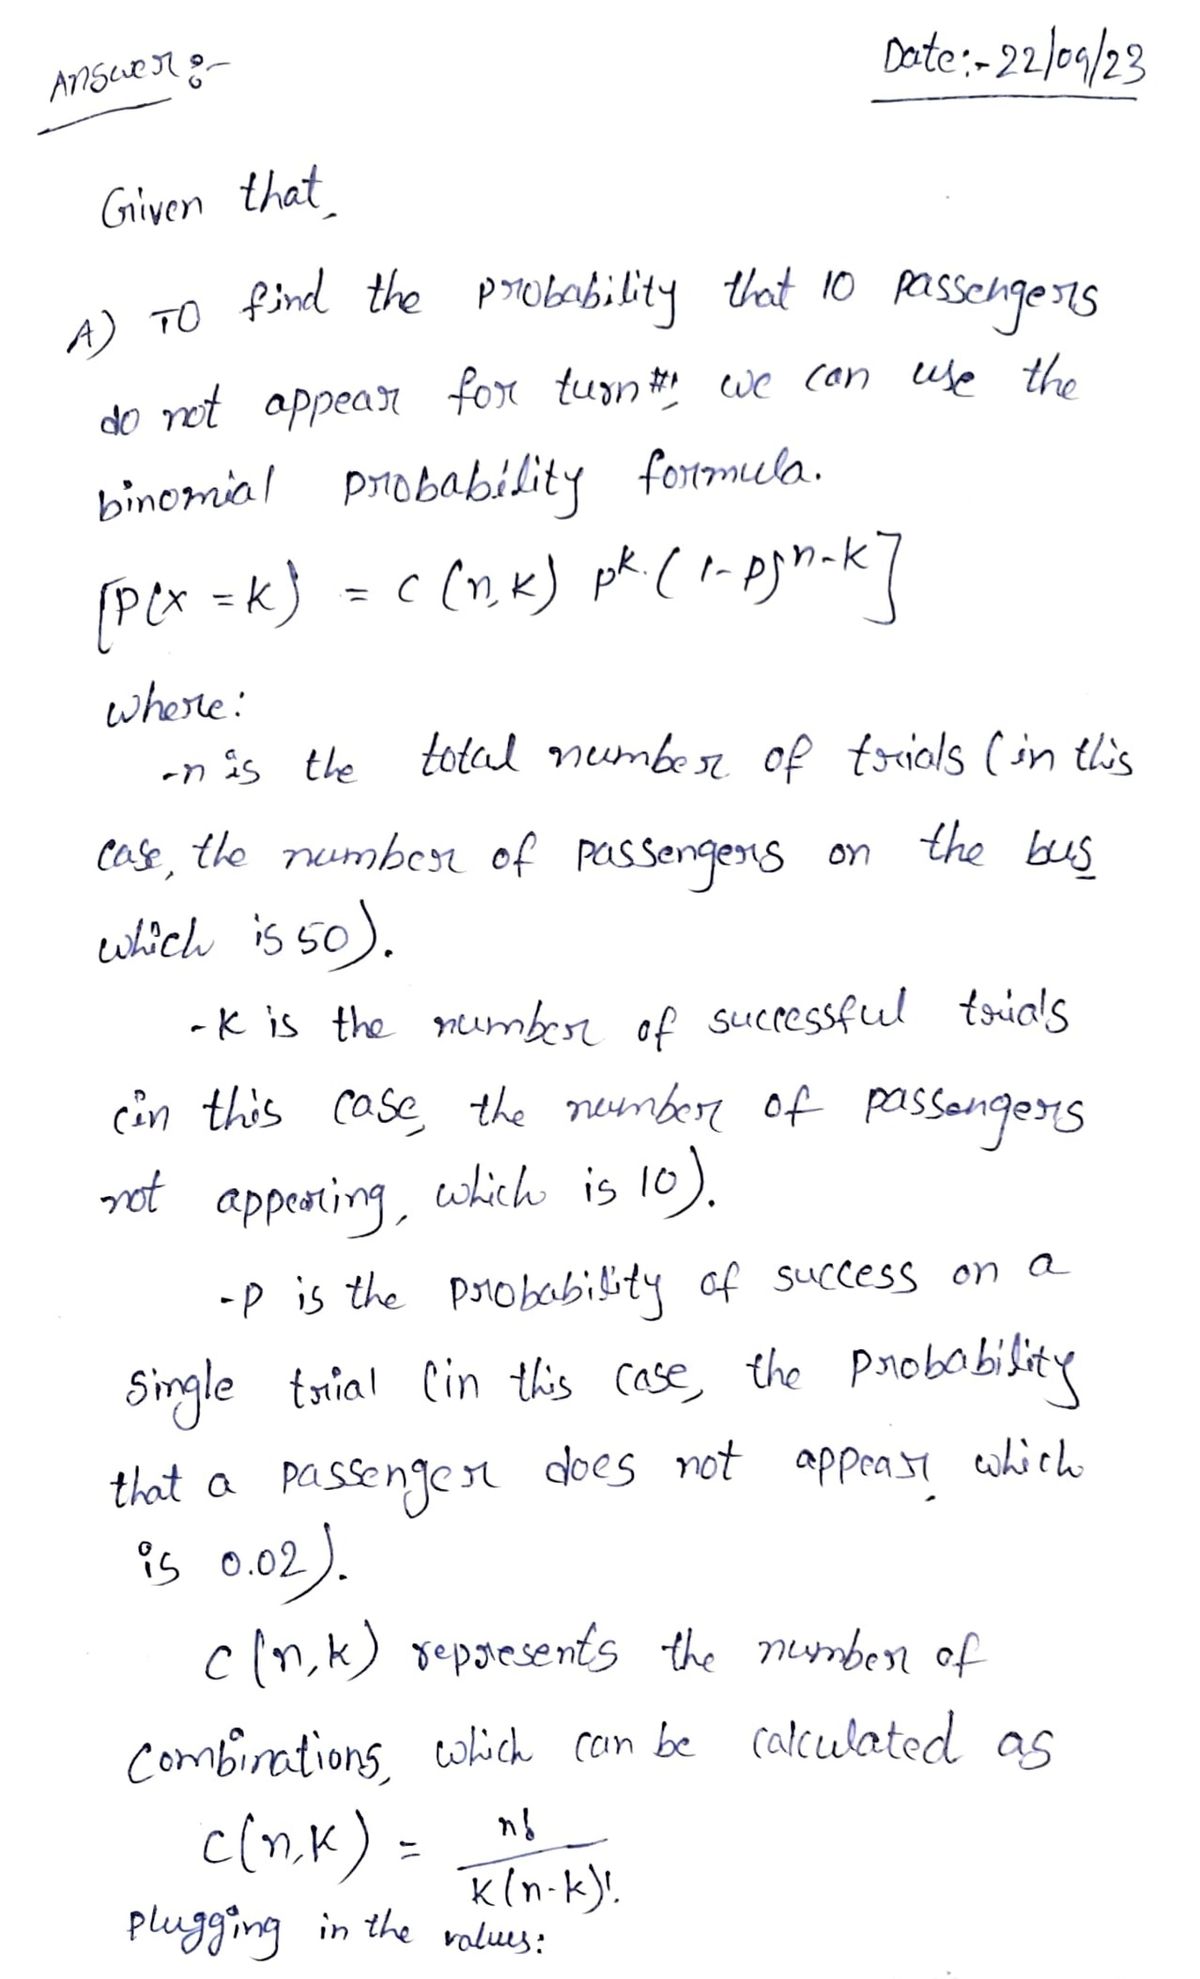 Answer:-
Date:- 22/09/23
Given that,
A) TO find the probability that 10 passengers
do not appear for turn #1, we can use the
binomial probability formula.
[P(x = k) = C (n, k) p^k. (1-p)^n-k]
where:
-n is the total number of trials (in this
case, the number of passengers on the bus
which is 50).
-k is the number of successful trials
(in this case, the number of passengers
not appearing, which is 10).
-P is the probability of success on a
single trial (in this case, the probability
that a passenger does not appear, which
is 0.02).
C(n, k) represents the number of
combinations, which can be calculated as
C(n, k) = n! / k(n-k)!.
Plugging in the values: